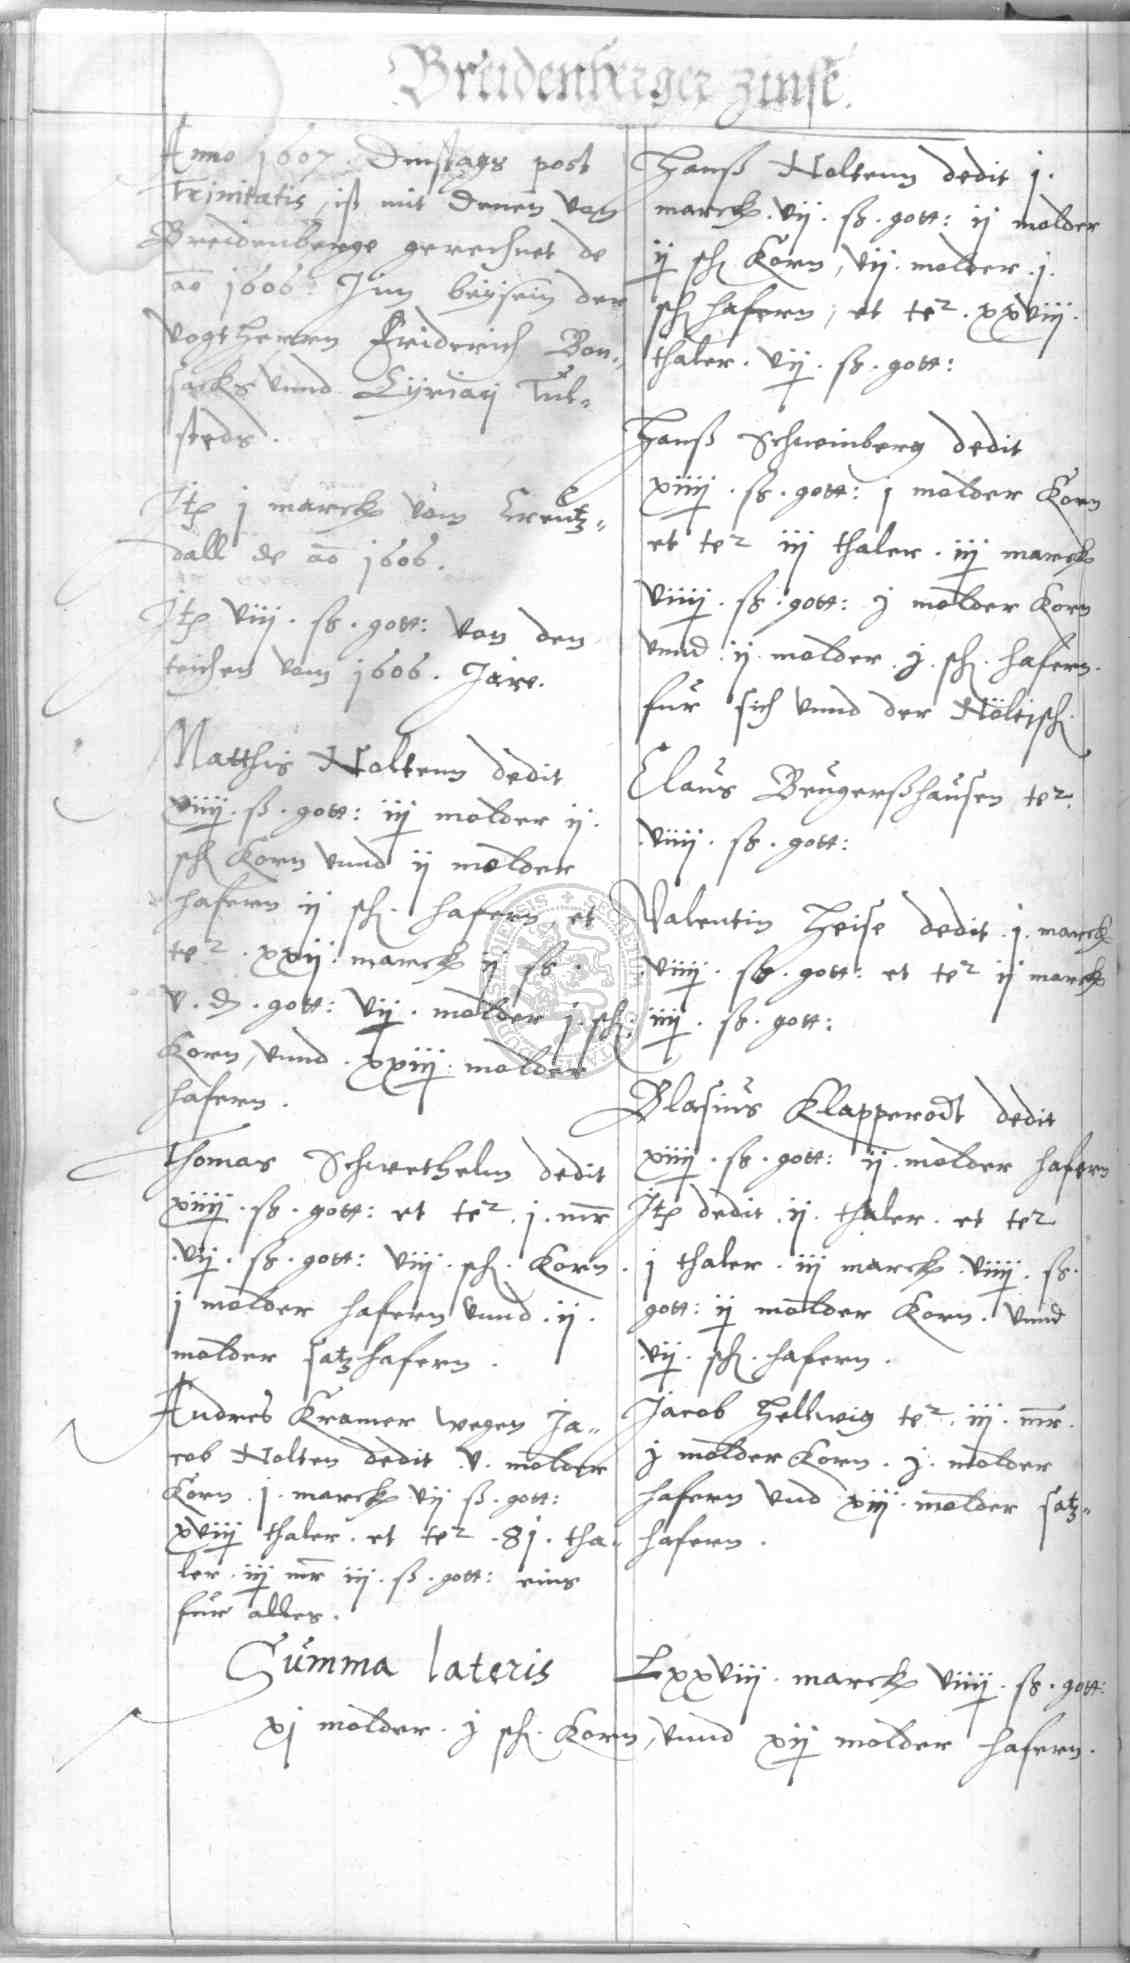 Breidenberger zinse.
Anno 1607 Dinstags post
Trinitatis, ist mit Denen von
Breidenberge gerechnet de
ao 1606. Jnn beysein der
Vogtherrn Friderich Bon-
sacks vnnd Cyriaci Tut-
steds.
Jtem j marck vom Creutz-
dall de ao 1606.
Jtem viij. ß. gott: von den
teichen vom 1606. Jare.
Matthis Noltenn dedit
viiij. ß. gott: iij molder ij.
sch Korn vnnd ij molder
hafern ij sch. hafern, et
te2. xxij. marck ij ß.
v. d. gott: vij. molder j. sch:
Korn, vnnd. xxiij. molder
hafern.
Thomas Schwethelm dedit
xiiij. ß. gott: et te2. j. mr
.vij. ß. gott: viij. sch. Korn.
j molder hafern vnnd. ij.
molder satzhafern.
Andres Kramer wegen Ja-
cob Nolten dedit v. molder
Korn. j. marck vij ß. gott:
xviij thaler. et te2. 81. tha-
ler. iij mr iij. ß. gott: eins
fur alles.
Hanß Noltenn dedit j.
marck. vij. ß. gott: ij molder
ij sch Korn, vij. molder. j.
sch hafern, et te2. xxviij.
thaler. vij. ß. gott:
Hanß Schweinberg dedit
xiiij. ß. gott: j molder Korn
et te2 iij thaler. iij marck
viiij. ß. gott: j molder Korn
vnnd. ij. molder. j. sch. hafern.
fur sich vnnd der Nöltisch
Claus Brugerßhausen te2.
.viiij. ß. gott:
Valentin Heise dedit. j. marck
.viiij. ß. gott: et te2 ij marck
iiij. ß. gott:
Blasius Klapperodt dedit
xiiij. ß. gott: ij. molder hafern
Jtem dedit. ij. thaler. et te2
j thaler. iij marck. viiij. ß.
gott: ij molder Korn. vnnd
.vij. sch. hafern.
Jacob Hellwig te2. iij. mr.
j molder Korn. j. molder
hafern vnd xiij. molder satz-
hafern.
Summa lateris Lxxviij. marck viiij. ß. gott:
xj molder. j sch. Korn, vnnd xij molder hafern.